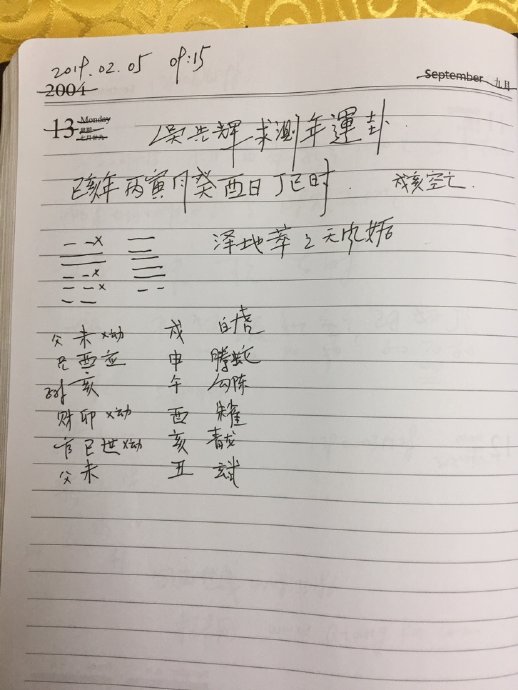 2019.02.05 09:15
2004
September 九月
13 Monday
吴先辉求测年運卦
己亥年丙寅月癸酉日丁巳时 戌亥空亡
泽地萃之天风姤
父未x动 戌 白虎
兄酉应 申 腾蛇
财亥 午 勾陈
财卯x动 酉 朱雀
官巳世x动 亥 青龙
父未 丑 玄武